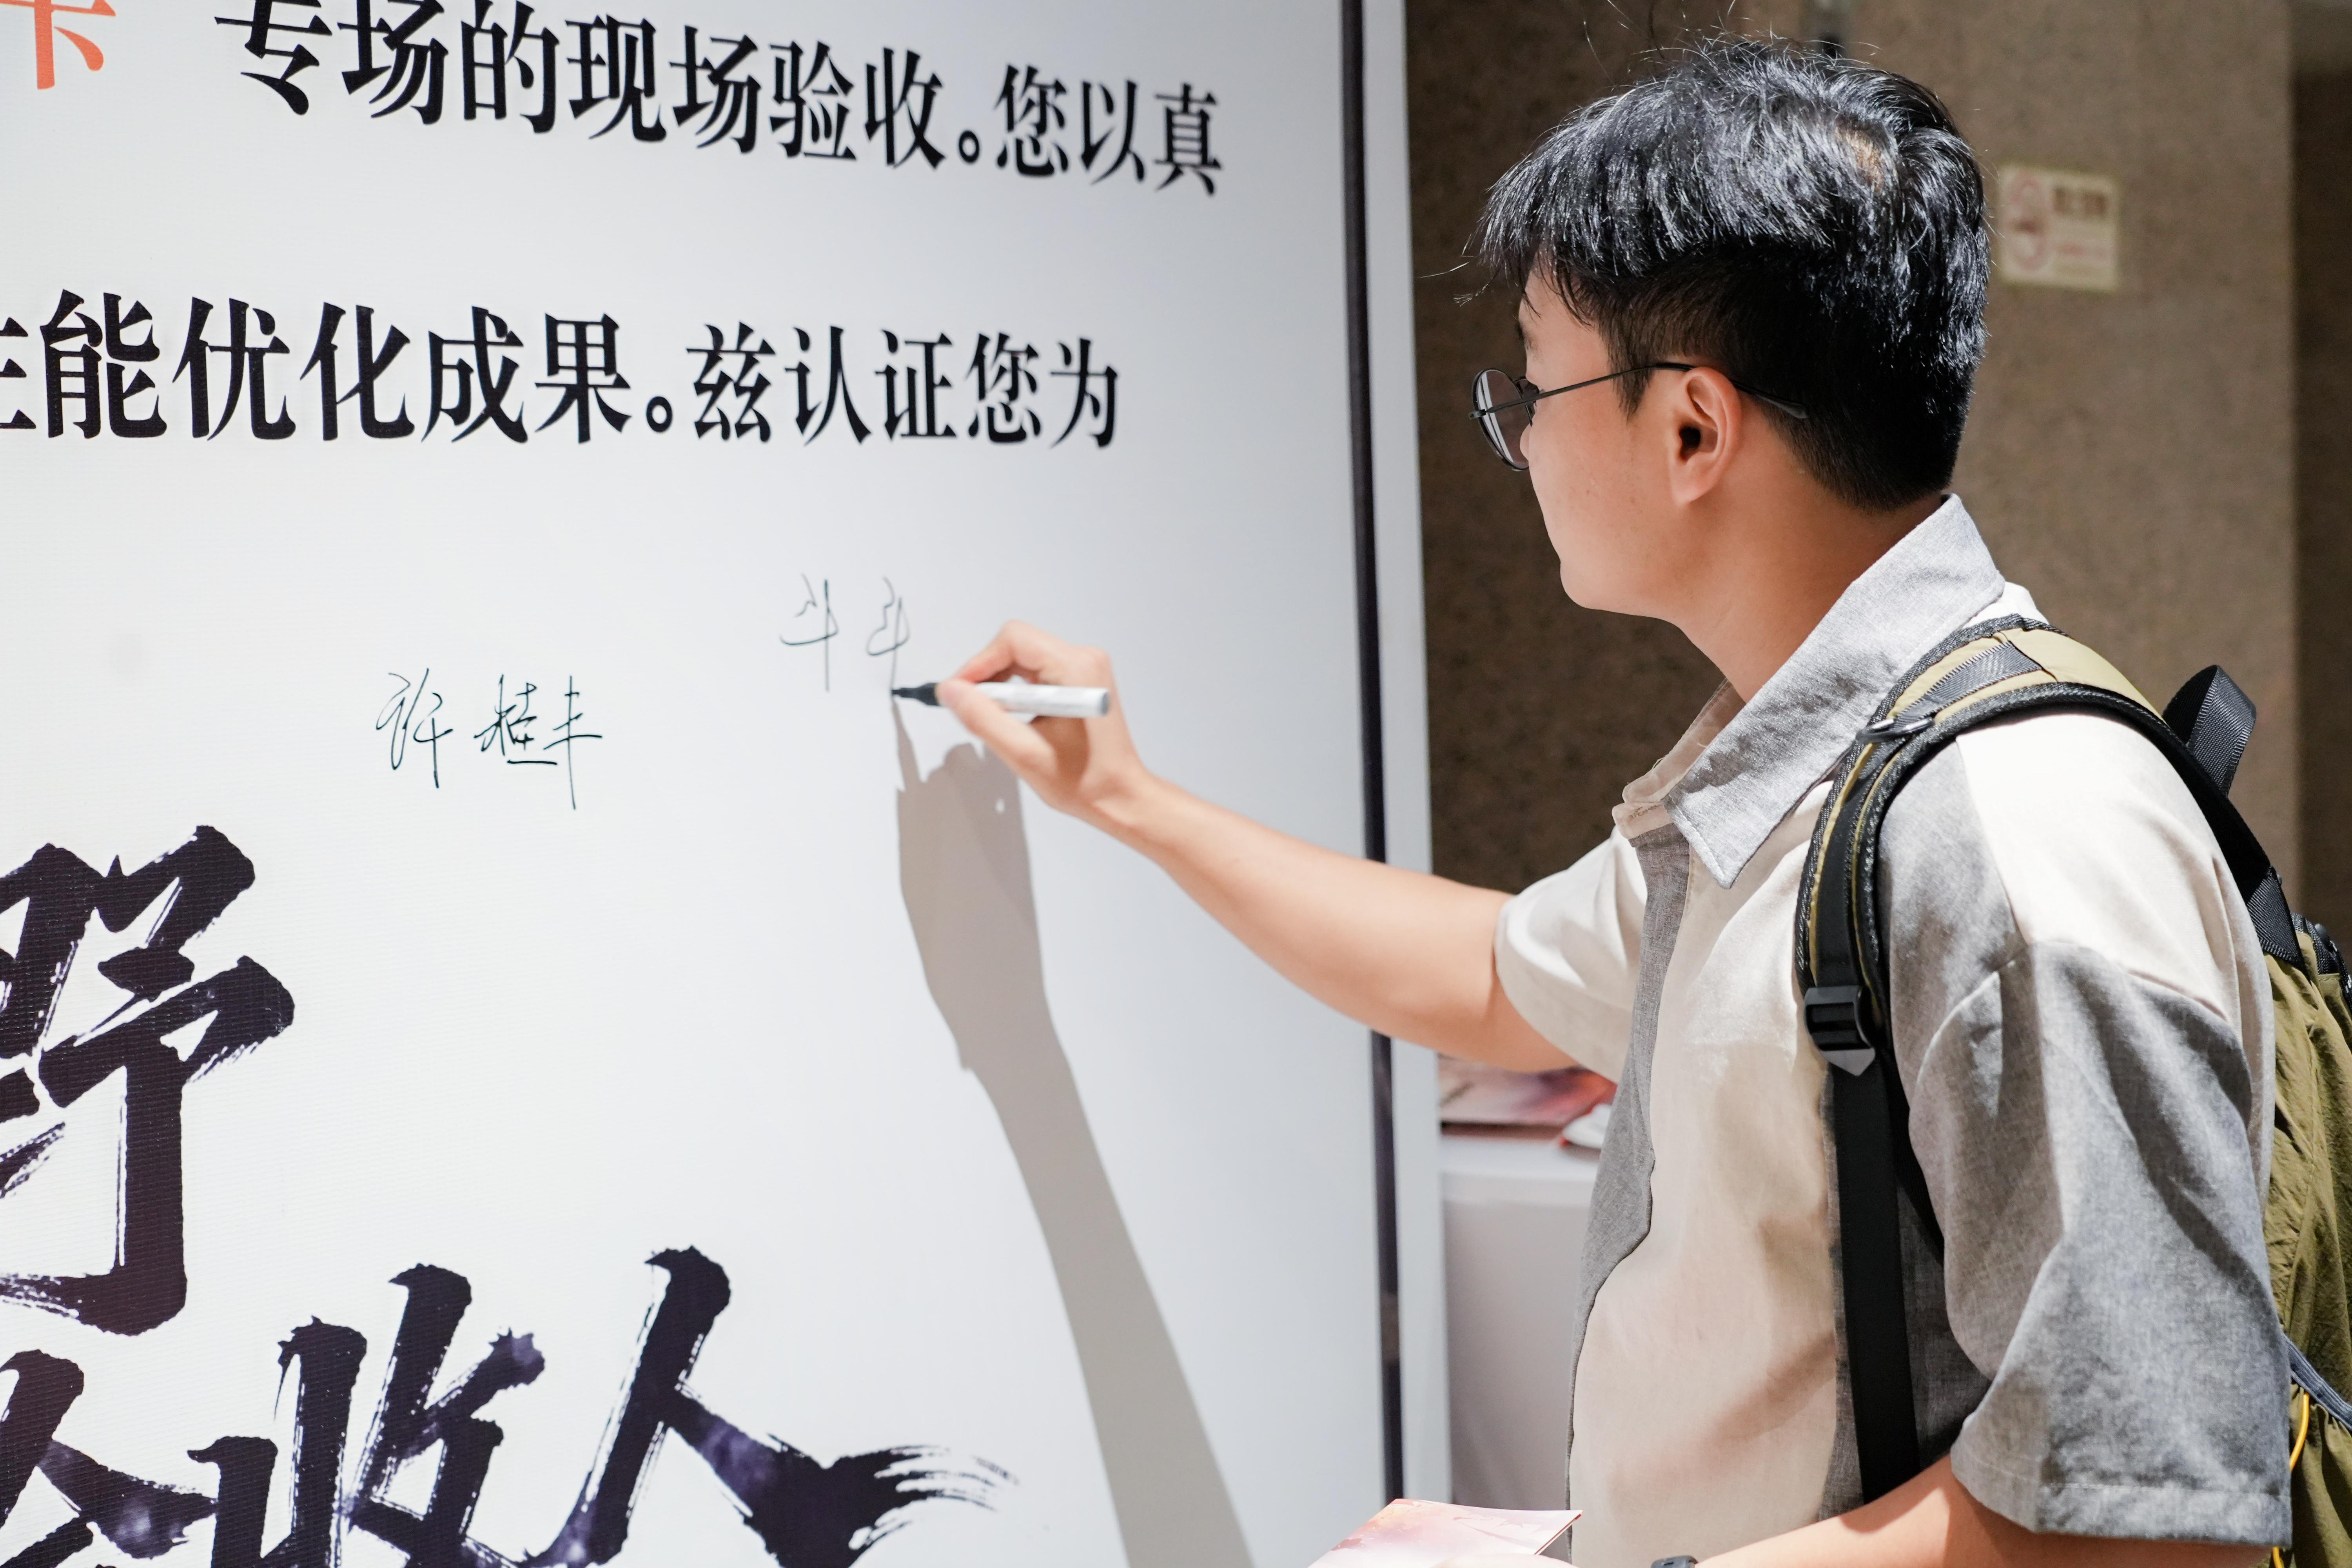 卡 专场的现场验收。您以真
性能优化成果。兹认证您为
斗 斗
许 桂丰
野
验收人